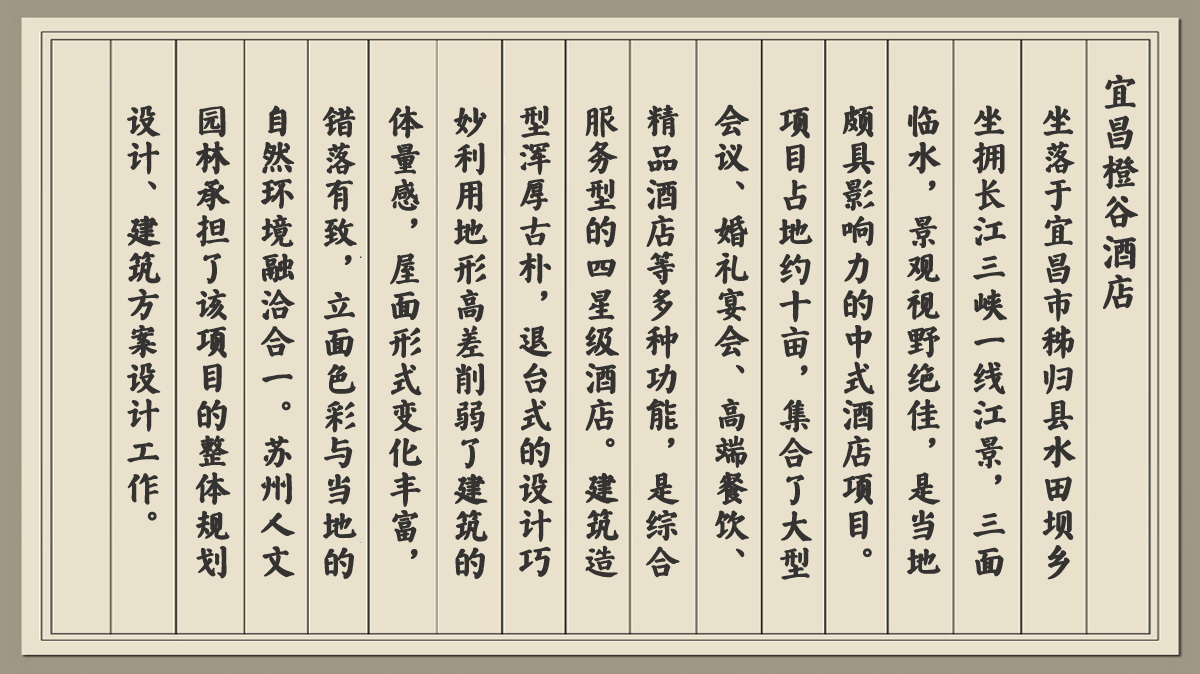 宜昌橙谷酒店
坐落于宜昌市秭归县水田坝乡
坐拥长江三峡一线江景，三面
临水，景观视野绝佳，是当地
颇具影响力的中式酒店项目。
项目占地约十亩，集合了大型
会议、婚礼宴会、高端餐饮、
精品酒店等多种功能，是综合
服务型的四星级酒店。建筑造
型浑厚古朴，退台式的设计巧
妙利用地形高差削弱了建筑的
体量感，屋面形式变化丰富，
错落有致，立面色彩与当地的
自然环境融洽合一。苏州人文
园林承担了该项目的整体规划
设计、建筑方案设计工作。